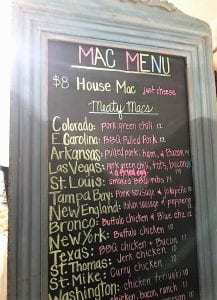 MAC MENU
$8 House Mac just cheese
Meaty Macs
Colorado: pork green chili 12
E. Carolina: BBQ Pulled Pork 12
Arkansas: pulled pork, ham, & Bacon
Las Vegas: pork green chili, tots, bacon
St. Louis: smoked BBQ ribs 14
Tampa Bay: Pork sausage & jalapeño
New England: Italian sausage & pepper
Bronco: Buffalo chicken & Blue chz
New York: Buffalo chicken 11
Texas: BBQ chicken & Bacon
St. Thomas: Jerk chicken 11
St. Mike: Curry chicken
Washington: chicken teriyaki